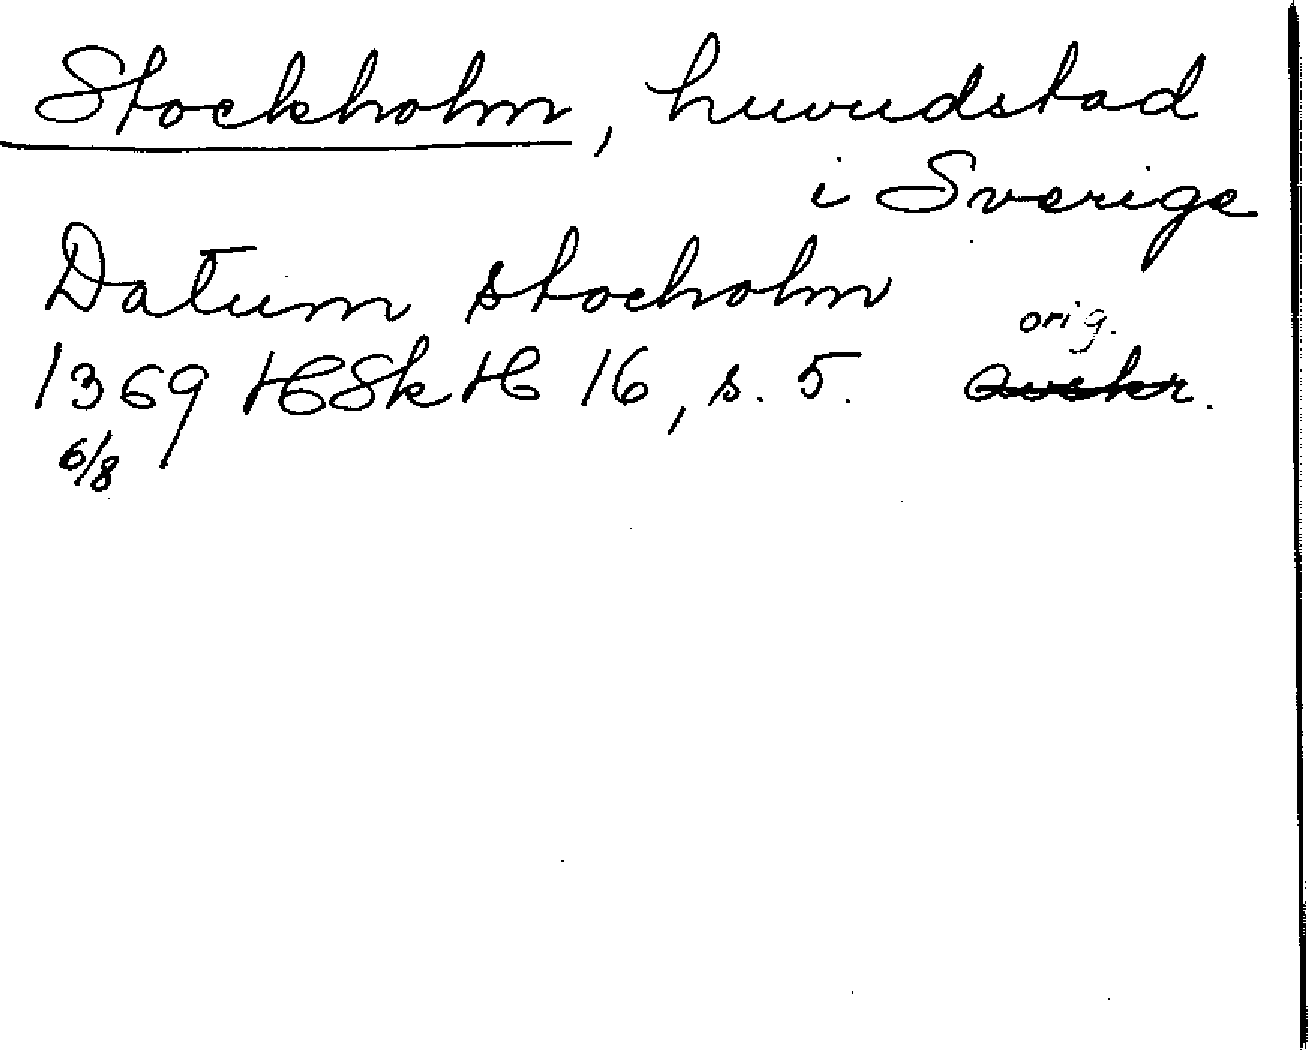 Stockholm, huvudstad
i Sverige
Datum stocholm
orig.
1369 HSkH 16, s. 5. avskr.
6/8